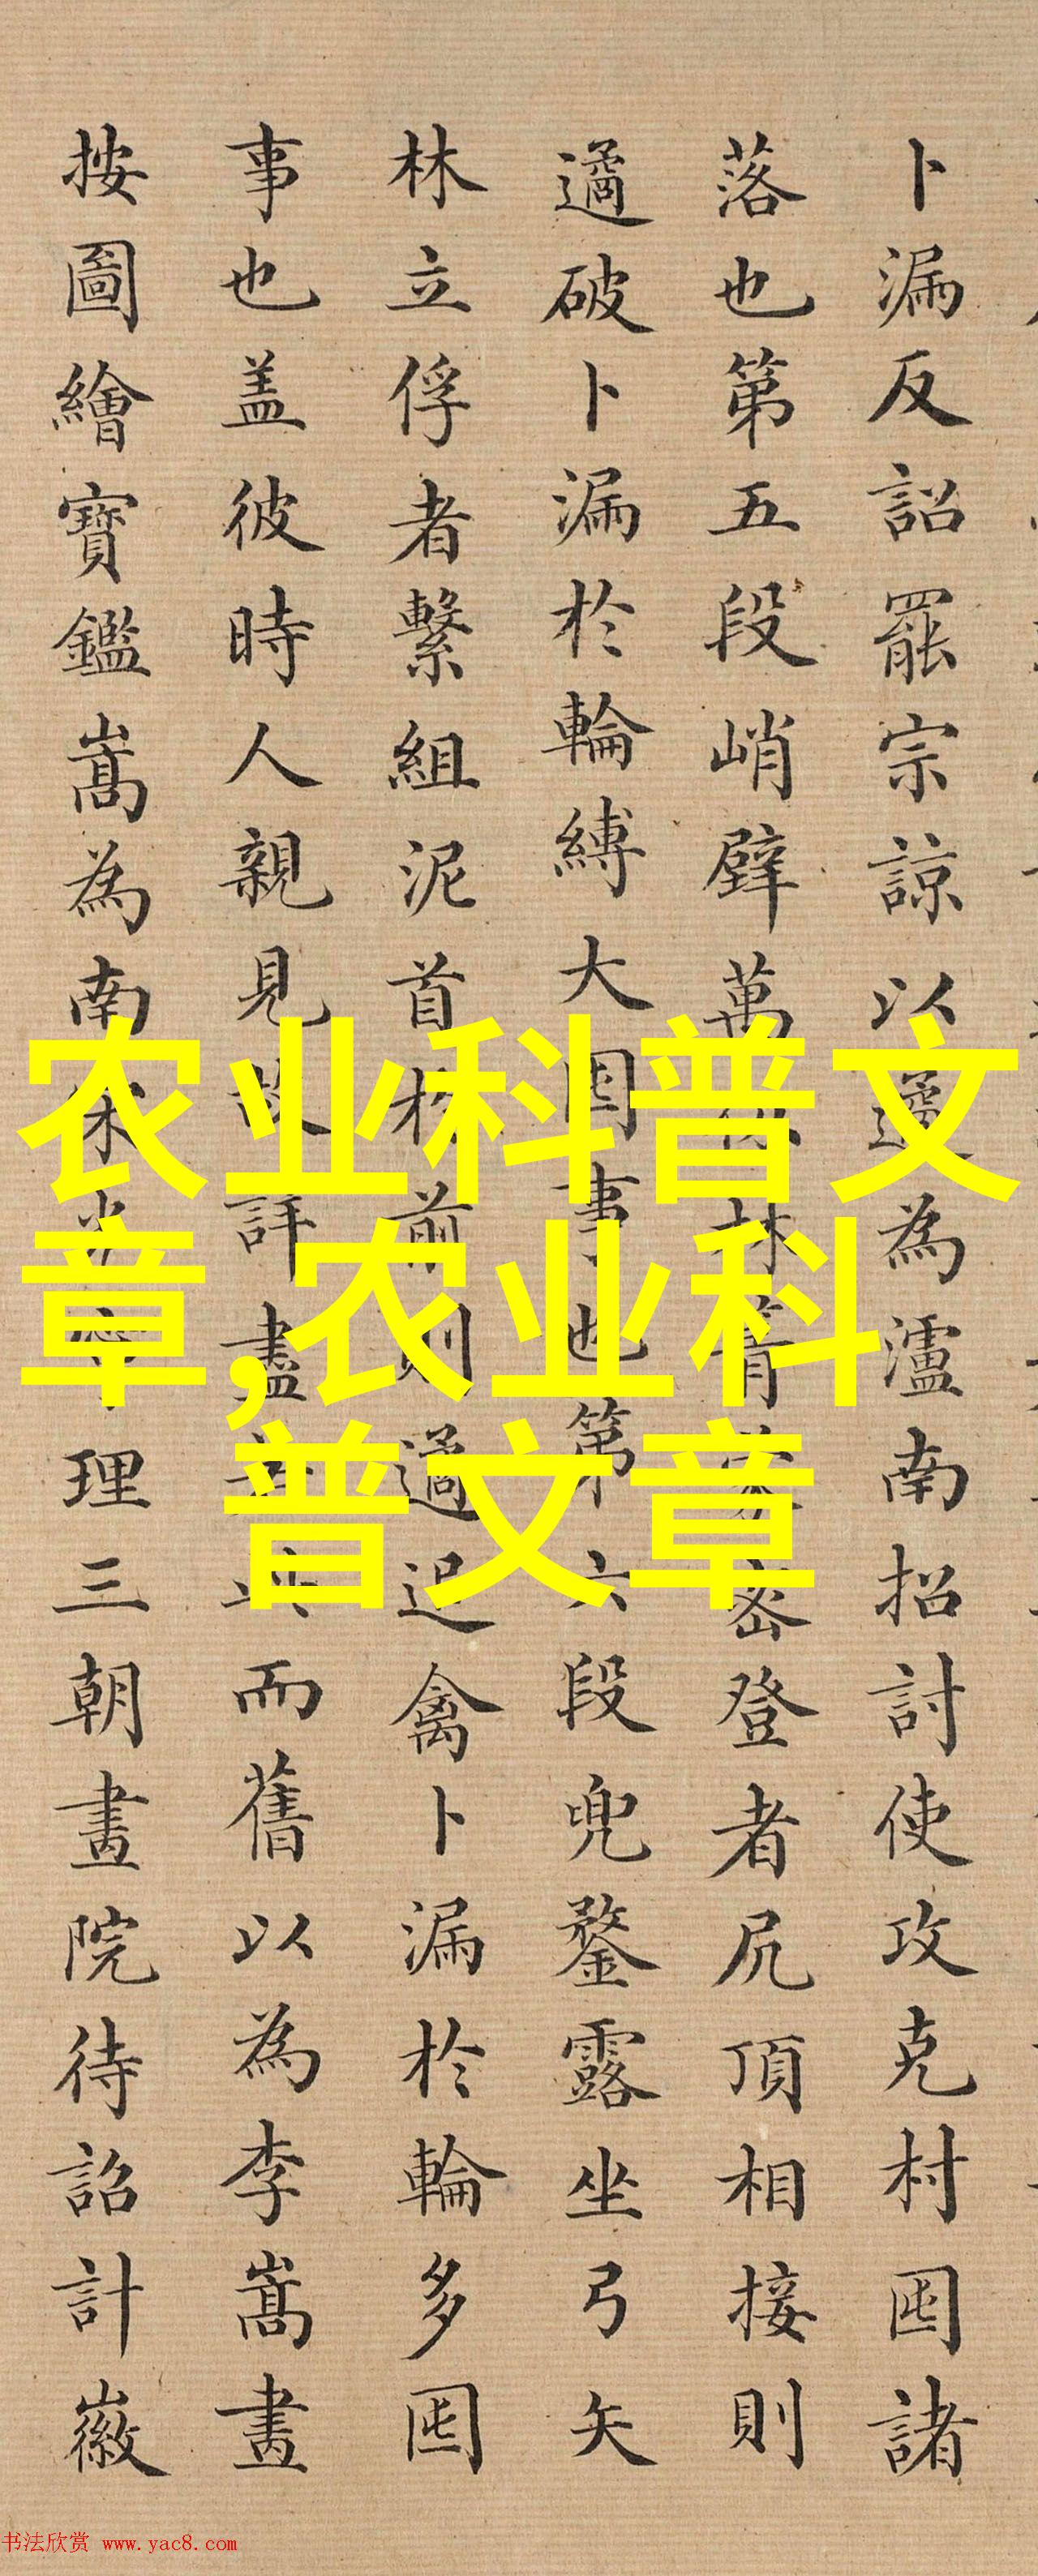 卜漏反詔罷宗諒以遹為瀘南招討使攻克村囤諸
落也第五段峭壁萬林菁密登者尻頂相接則
遹破卜漏於輪縛大囤事也第六段兜鍪露坐弓矢
林立俘者繫組泥首於前則遹追禽卜漏於輪多囤
事也盖彼時人親見故詳盡若此而舊以為李嵩畫
按圖繪寶鑑嵩為南宋光寧理三朝畫院待詔計徽
农业科普文
章,农业科
普文章
书法欣赏 www.yac8.com